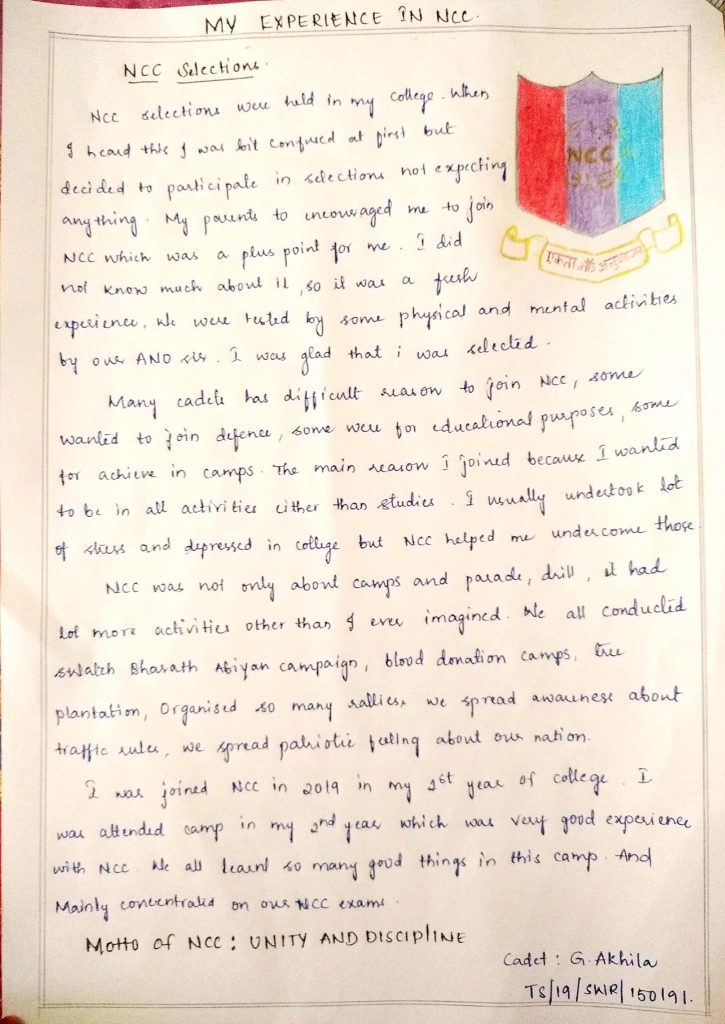 MY EXPERIENCE IN NCC.
NCC Selections.
NCC selections were held in my college. When
I heard this I was bit confused at first but
decided to participate in selections not expecting
anything. My parents to encouraged me to join
NCC which was a plus point for me. I did
not know much about it, so it was a fresh
experience, We were tested by some physical and mental activities
by our ANO sir. I was glad that i was selected.
NCC
एकता और अनुशासन
Many cadets has difficult reason to join NCC, some
wanted to join defence, some were for educational purposes, some
for achieve in camps. The main reason I joined because I wanted
to be in all activities either than studies. I usually undertook lot
of stress and depressed in college but NCC helped me undercome those.
NCC was not only about camps and parade, drill, it had
lot more activities other than I ever imagined. We all conducted
swatch Bharath Abiyan campaign, blood donation camps, tree
plantation, Organised so many rallies, we spread awareness about
traffic rules, we spread patriotic feeling about our nation.
I was joined NCC in 2019 in my 1st year of college. I
was attended camp in my 2nd year which was very good experience
with NCC. We all learnt so many good things in this camp. And
Mainly concentrated on our NCC exams.
Motto of NCC: UNITY AND DISCIPLINE
Cadet: G. Akhila
TS/19/SWR/150191.